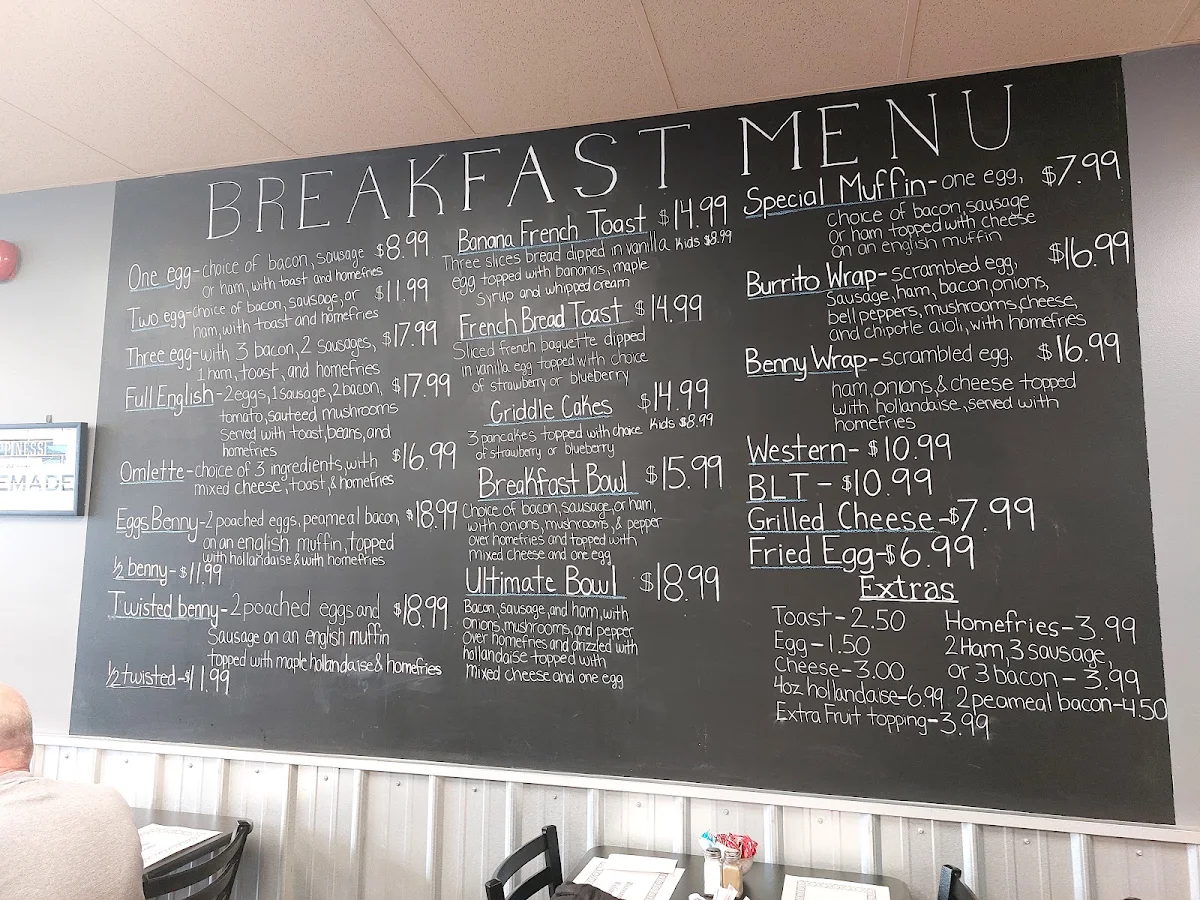 BREAKFAST MENU
One egg-choice of bacon, sausage $8.99
or ham, with toast and homefries
Two egg-choice of bacon, sausage, or $11.99
ham, with toast and homefries
Three egg-with 3 bacon, 2 sausages, $17.99
1 ham, toast, and homefries
Full English-2eggs, 1 sausage, 2 bacon, $17.99
tomato, sauteed mushrooms
Served with toast, beans, and
homefries
Omlette-choice of 3 ingredients, with $16.99
mixed cheese, toast, & homefries
Eggs Benny-2 poached eggs, peameal bacon, $18.99
on an english muffin, topped
with hollandaise & with homefries
½ benny-$11.99
Twisted benny-2 poached eggs and $18.99
Sausage on an english muffin
topped with maple hollandaise & homefries
½ twisted-$11.99
Banana French Toast $14.99
Three slices bread dipped in vanilla Kids $8.99
egg topped with bananas, maple
Syrup and whipped cream
French Bread Toast $14.99
Sliced french baguette dipped
in vanilla egg topped with choice
of strawberry or blueberry
Griddle Cakes $14.99
3 pancakes topped with choice Kids $8.99
of strawberry or blueberry
Breakfast Bowl $15.99
Choice of bacon, sausage, or ham,
with onions, mushrooms, & pepper
over homefries and topped with
mixed cheese and one egg
Ultimate Bowl $18.99
Bacon, sausage, and ham, with
onions, mushrooms, and pepper
Over homefries and drizzled with
hollandaise topped with
mixed cheese and one egg
Special Muffin-one egg, $7.99
choice of bacon, sausage
or ham topped with cheese
on an english muffin
Burrito Wrap-scrambled egg, $16.99
Sausage, ham, bacon, onions,
bell peppers, mushrooms, cheese,
and chipotle aioli, with homefries
Benny Wrap-scrambled egg, $16.99
ham, onions, & cheese topped
with hollandaise, served with
homefries
Western-$10.99
BLT-$10.99
Grilled Cheese-$7.99
Fried Egg-$6.99
Extras
Toast-2.50
Egg-1.50
Cheese-3.00
4oz hollandaise-6.99
Extra Fruit topping-3.99
Homefries-3.99
2 Ham, 3 sausage,
or 3 bacon-3.99
2 peameal bacon-4.50
PPINESS!
EMADE